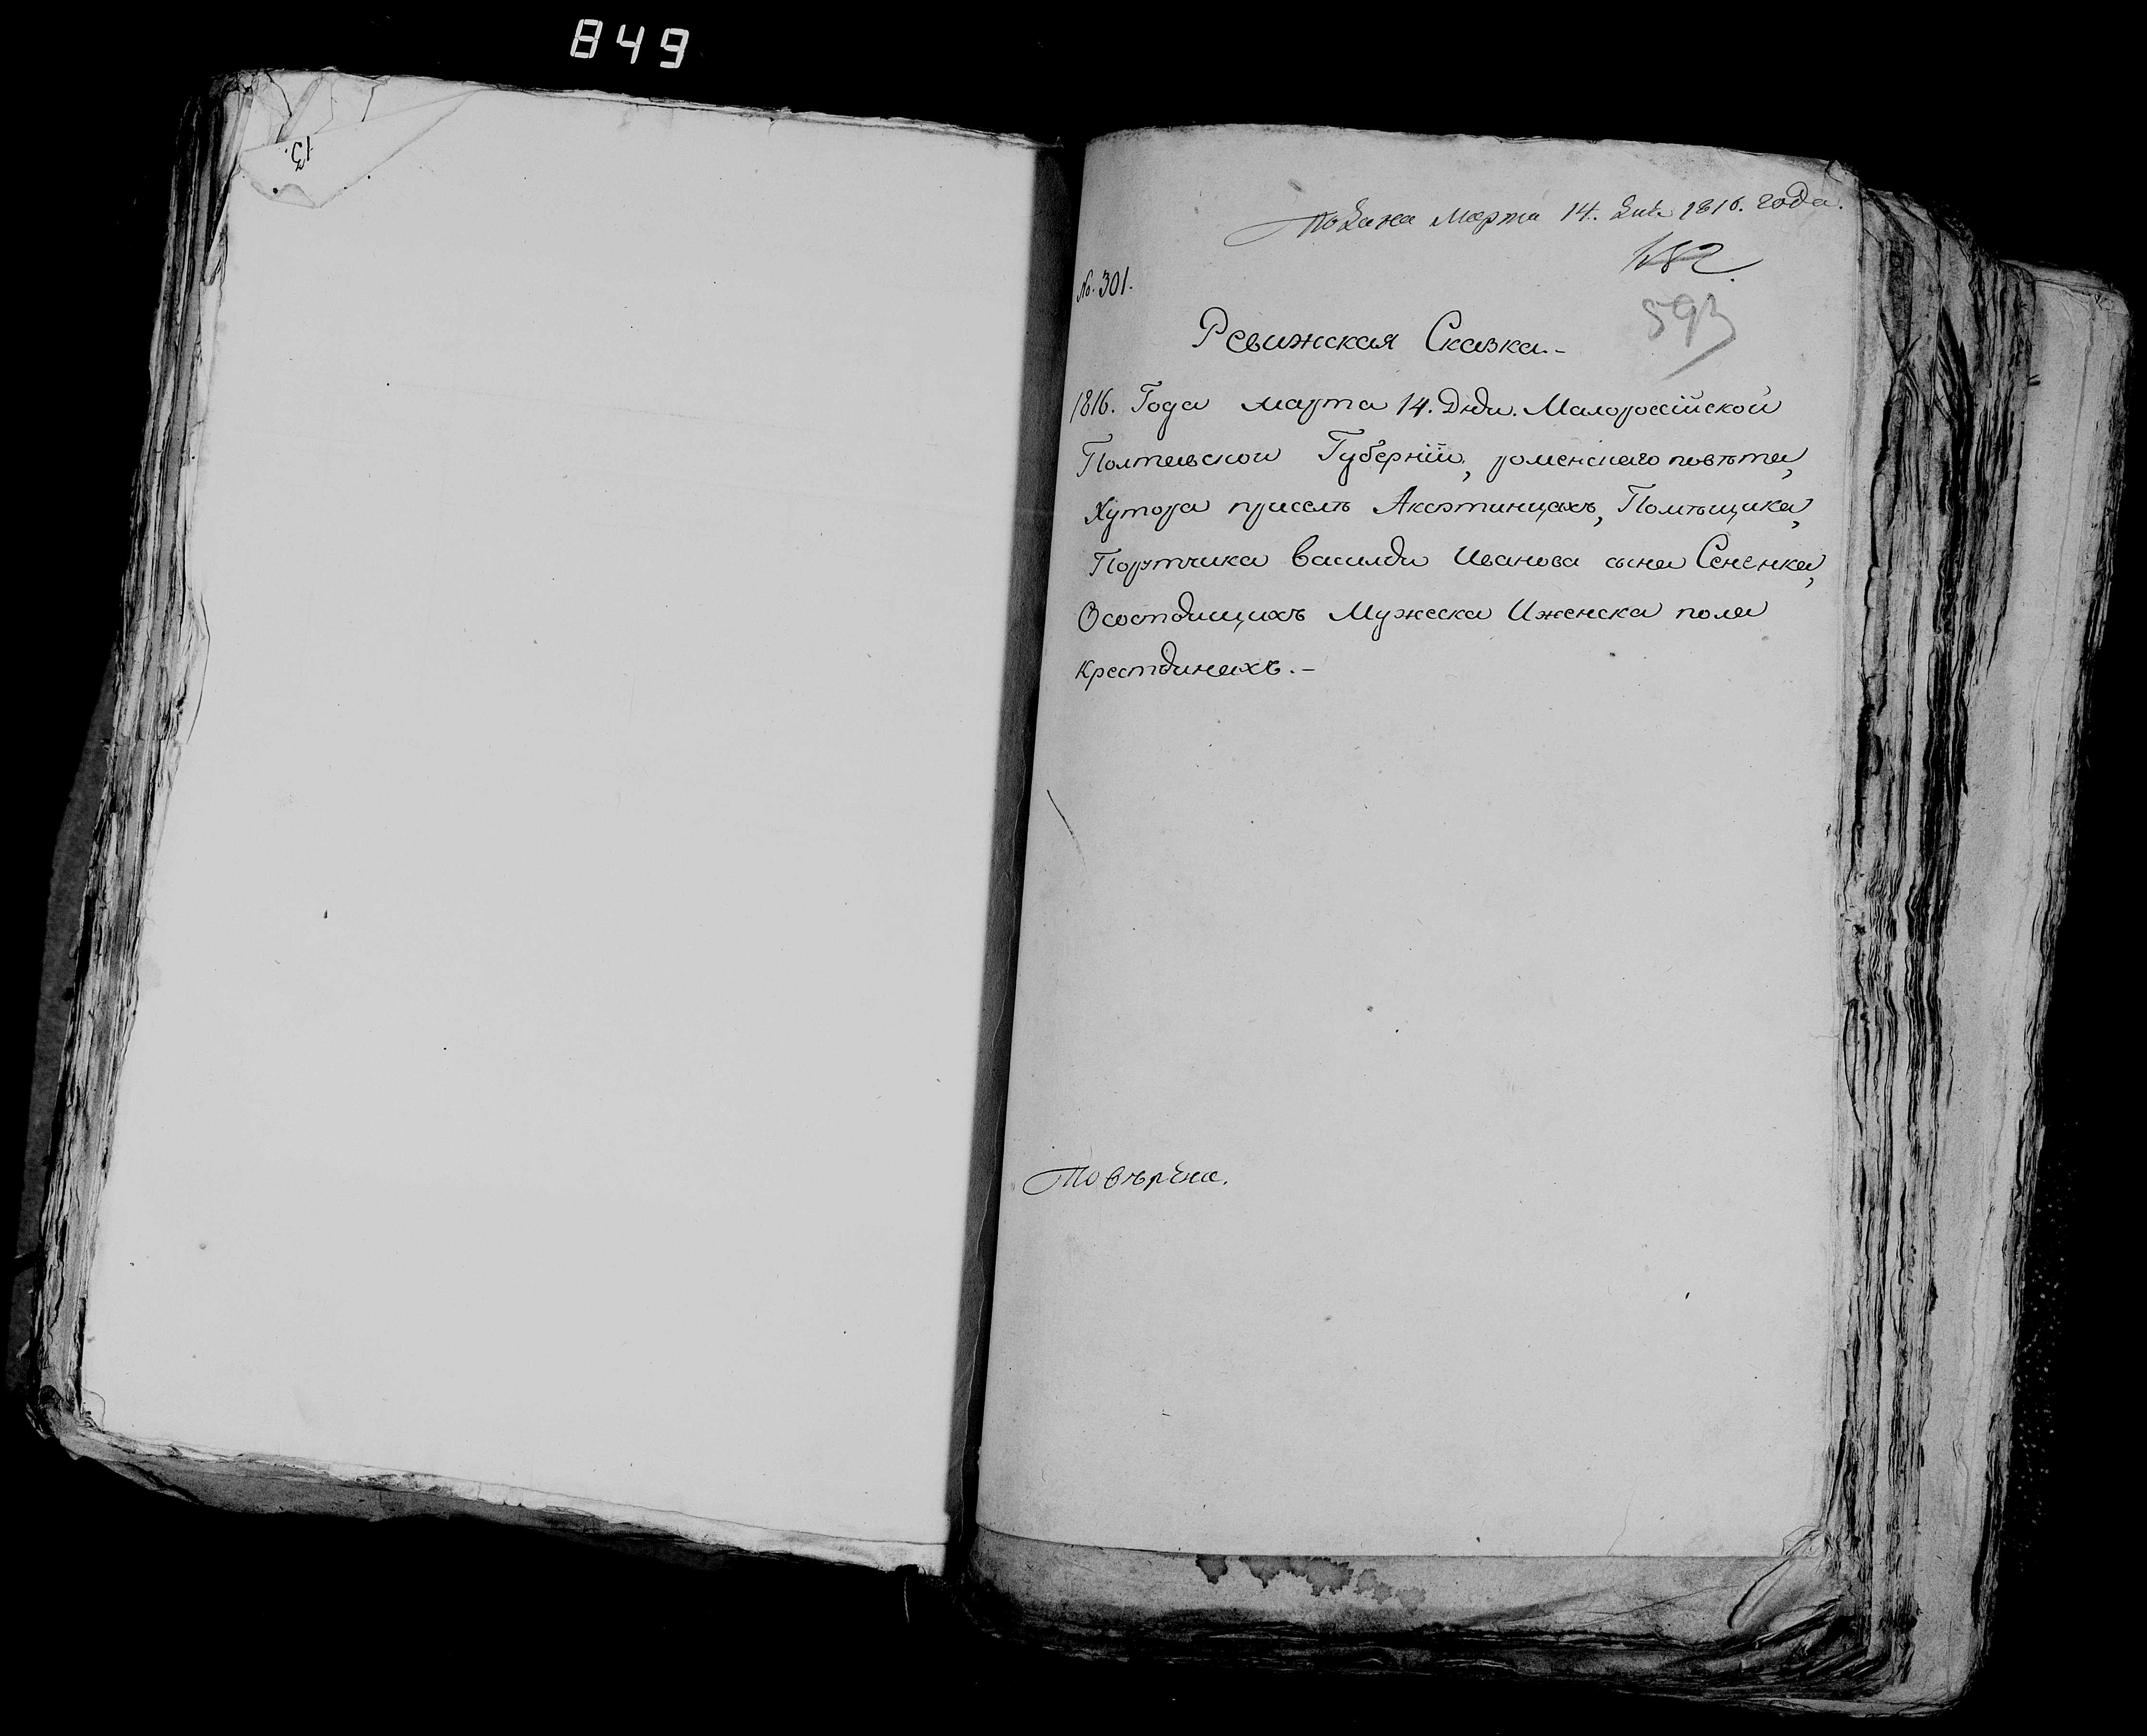 849
13.
Подана Марта 14. дня 1816. года.
182
593
№. 301.
Ревижская Сказка.-
1816. Года марта 14. дня. Малороссійской
Полтавской Губерніи, роменского повѣта,
Хутора приселѣ Аксютинцахъ, Помѣщика,
Портчика василя Иванова сына Сененка,
Осостоящихъ Мужеска Иженска пола
крестянахъ.-
Повѣрена.